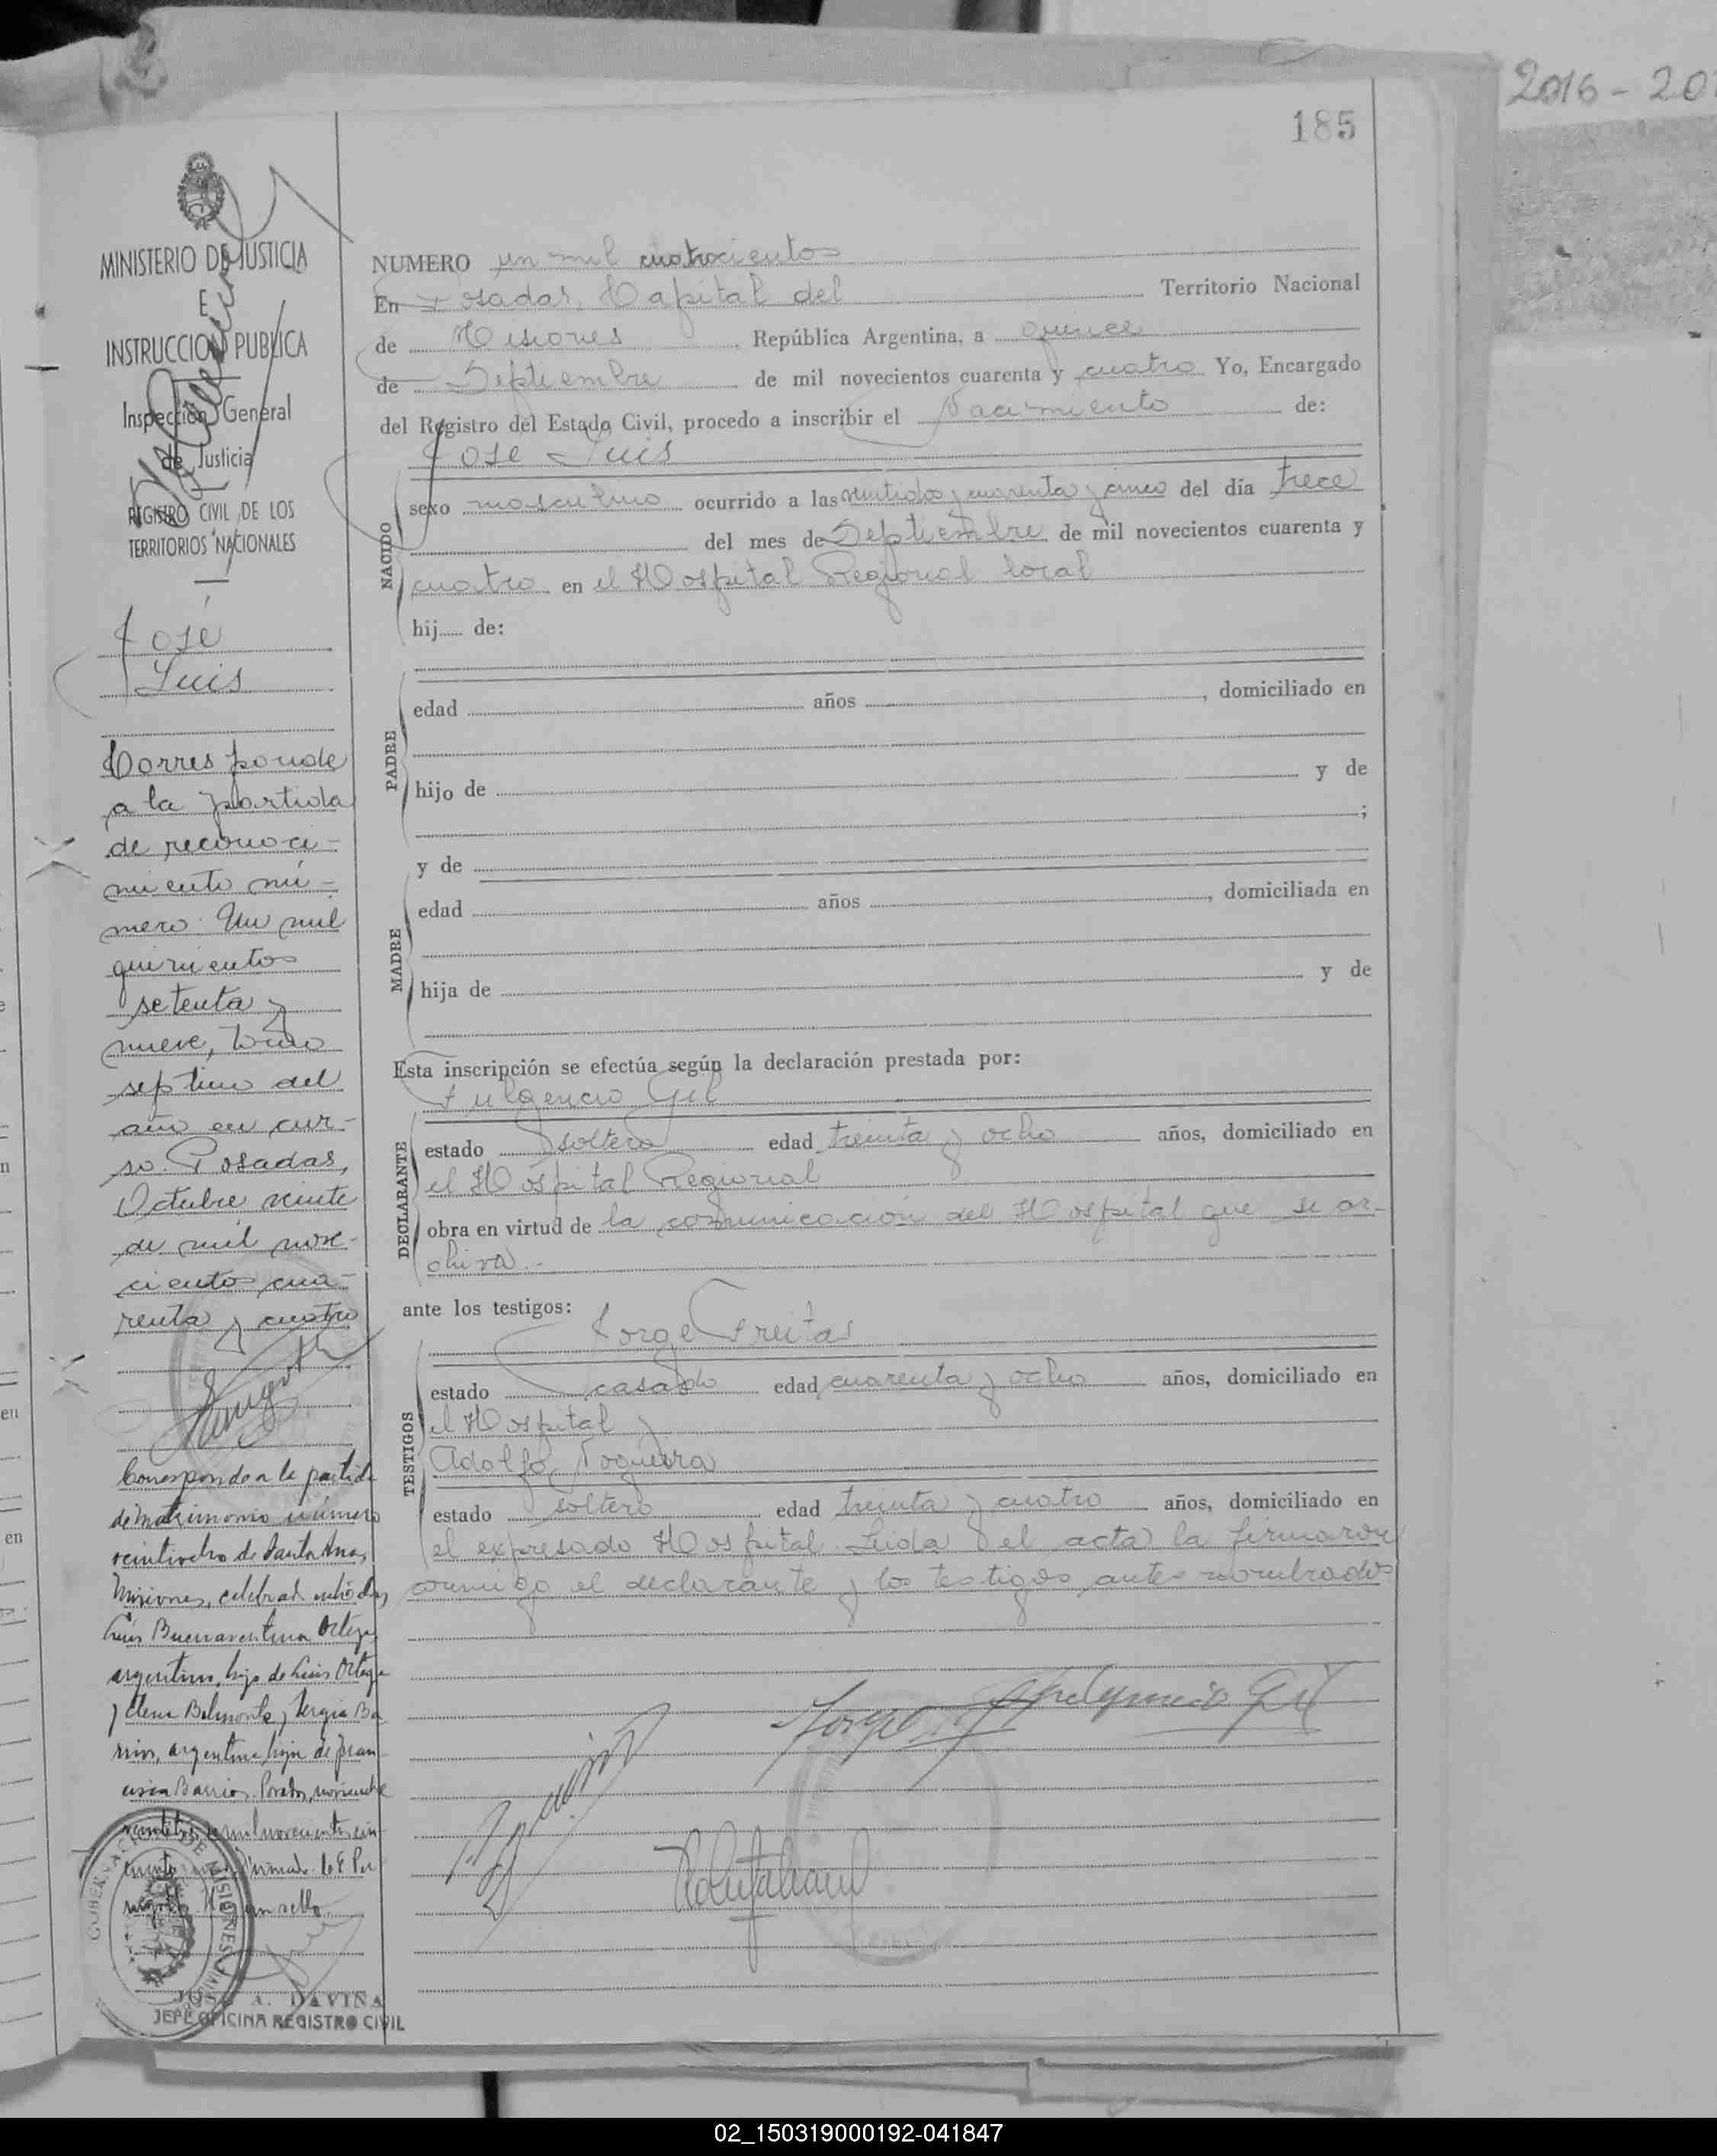 2016 - 20
185
MINISTERIO DE JUSTICIA
E
INSTRUCCION PUBLICA
Inspección General
de Justicia
REGISTRO CIVIL DE LOS
TERRITORIOS NACIONALES
José
Luis
Corresponde
a la partida
de reconoci-
miento nú-
mero Un mil
quinientos
setenta y
nueve, tomo
septimo del
año en cur-
so. Posadas,
Octubre veinte
de mil nove-
cientos cua-
renta y cuatro
Corresponde a la partida
de matrimonio número
veintiocho de Santa Ana,
Misiones, celebrado
Luis Buenaventura Ortega,
argentino, hijo de Luis Ortega
y Elena Belmonte y Sergia Ba
rrios, argentina hija de Fran
cisca Barrios. Posadas, noviembre
mil novecientos cin
cuenta
un sello
GOBERNACION DE MISIONES
JOSE A. DAVIÑA
JEFE OFICINA REGISTRO CIVIL
NUMERO un mil cuatrocientos
En Posadas, Capital del Territorio Nacional
de Misiones, República Argentina, a quince
de Septiembre de mil novecientos cuarenta y cuatro Yo, Encargado
del Registro del Estado Civil, procedo a inscribir el Nacimiento de:
José Luis
NACIDO
sexo masculino ocurrido a las veintidos y cuarenta y cinco del día trece
del mes de Septiembre de mil novecientos cuarenta y
cuatro, en el Hospital Regional local
hij..... de:
PADRE
edad años , domiciliado en
hijo de y de
;
y de
MADRE
edad años , domiciliada en
hija de y de
Esta inscripción se efectúa según la declaración prestada por:
Fulgencio Gil
DECLARANTE
estado soltero edad treinta y ocho años, domiciliado en
el Hospital Regional
obra en virtud de la comunicación del Hospital que se ar-
chiva.-
ante los testigos:
Jorge Freitas
TESTIGOS
estado casado edad cuarenta y ocho años, domiciliado en
el Hospital y
Adolfo Noguera
estado soltero edad treinta y cuatro años, domiciliado en
el expresado Hospital. Leida el acta la firmaron
conmigo el declarante y los testigos antes nombrados
Fulgencio Gil
02_150319000192-041847